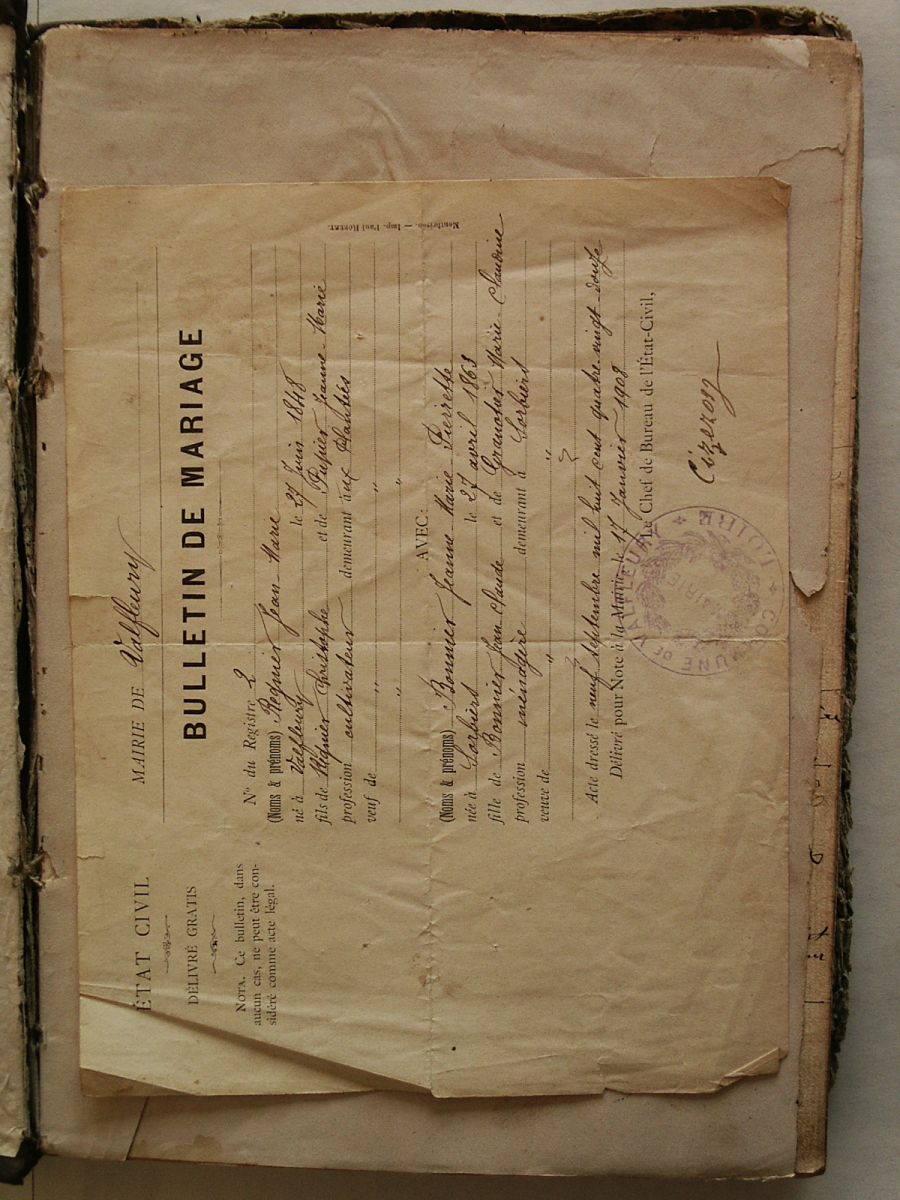 ÉTAT CIVIL
DÉLIVRÉ GRATIS
NOTA. Ce bulletin, dans
aucun cas, ne peut être con-
sidéré comme acte légal.
MAIRIE DE Valfleury
BULLETIN DE MARIAGE
N° du Registre 2
(Noms & prénoms) Regnier Jean Marie
né à Valfleury le 27 Juin 1848
fils de Regnier Christophe et de Pupier Jeanne-Marie
profession cultivateur demeurant aux Plantiés
veuf de " "
" "
AVEC:
(Noms & prénoms) Bonnier Jeanne Marie Pierrette
née à Sorbiers le 27 avril 1863
fille de Bonnier Jean Claude et de Granotier Marie-Claudine
profession ménagère demeurant à Sorbiers
veuve de " "
Acte dressé le neuf septembre mil huit cent quatre-vingt-douze
Délivré pour Note à la Mairie, le 17 Janvier 1908
Le Chef de Bureau de l'État-Civil,
Cizeron
COMMUNE DE VALFLEURY
LOIRE
MAIRIE
Montbrison. — Imp. Paul ROBERT.